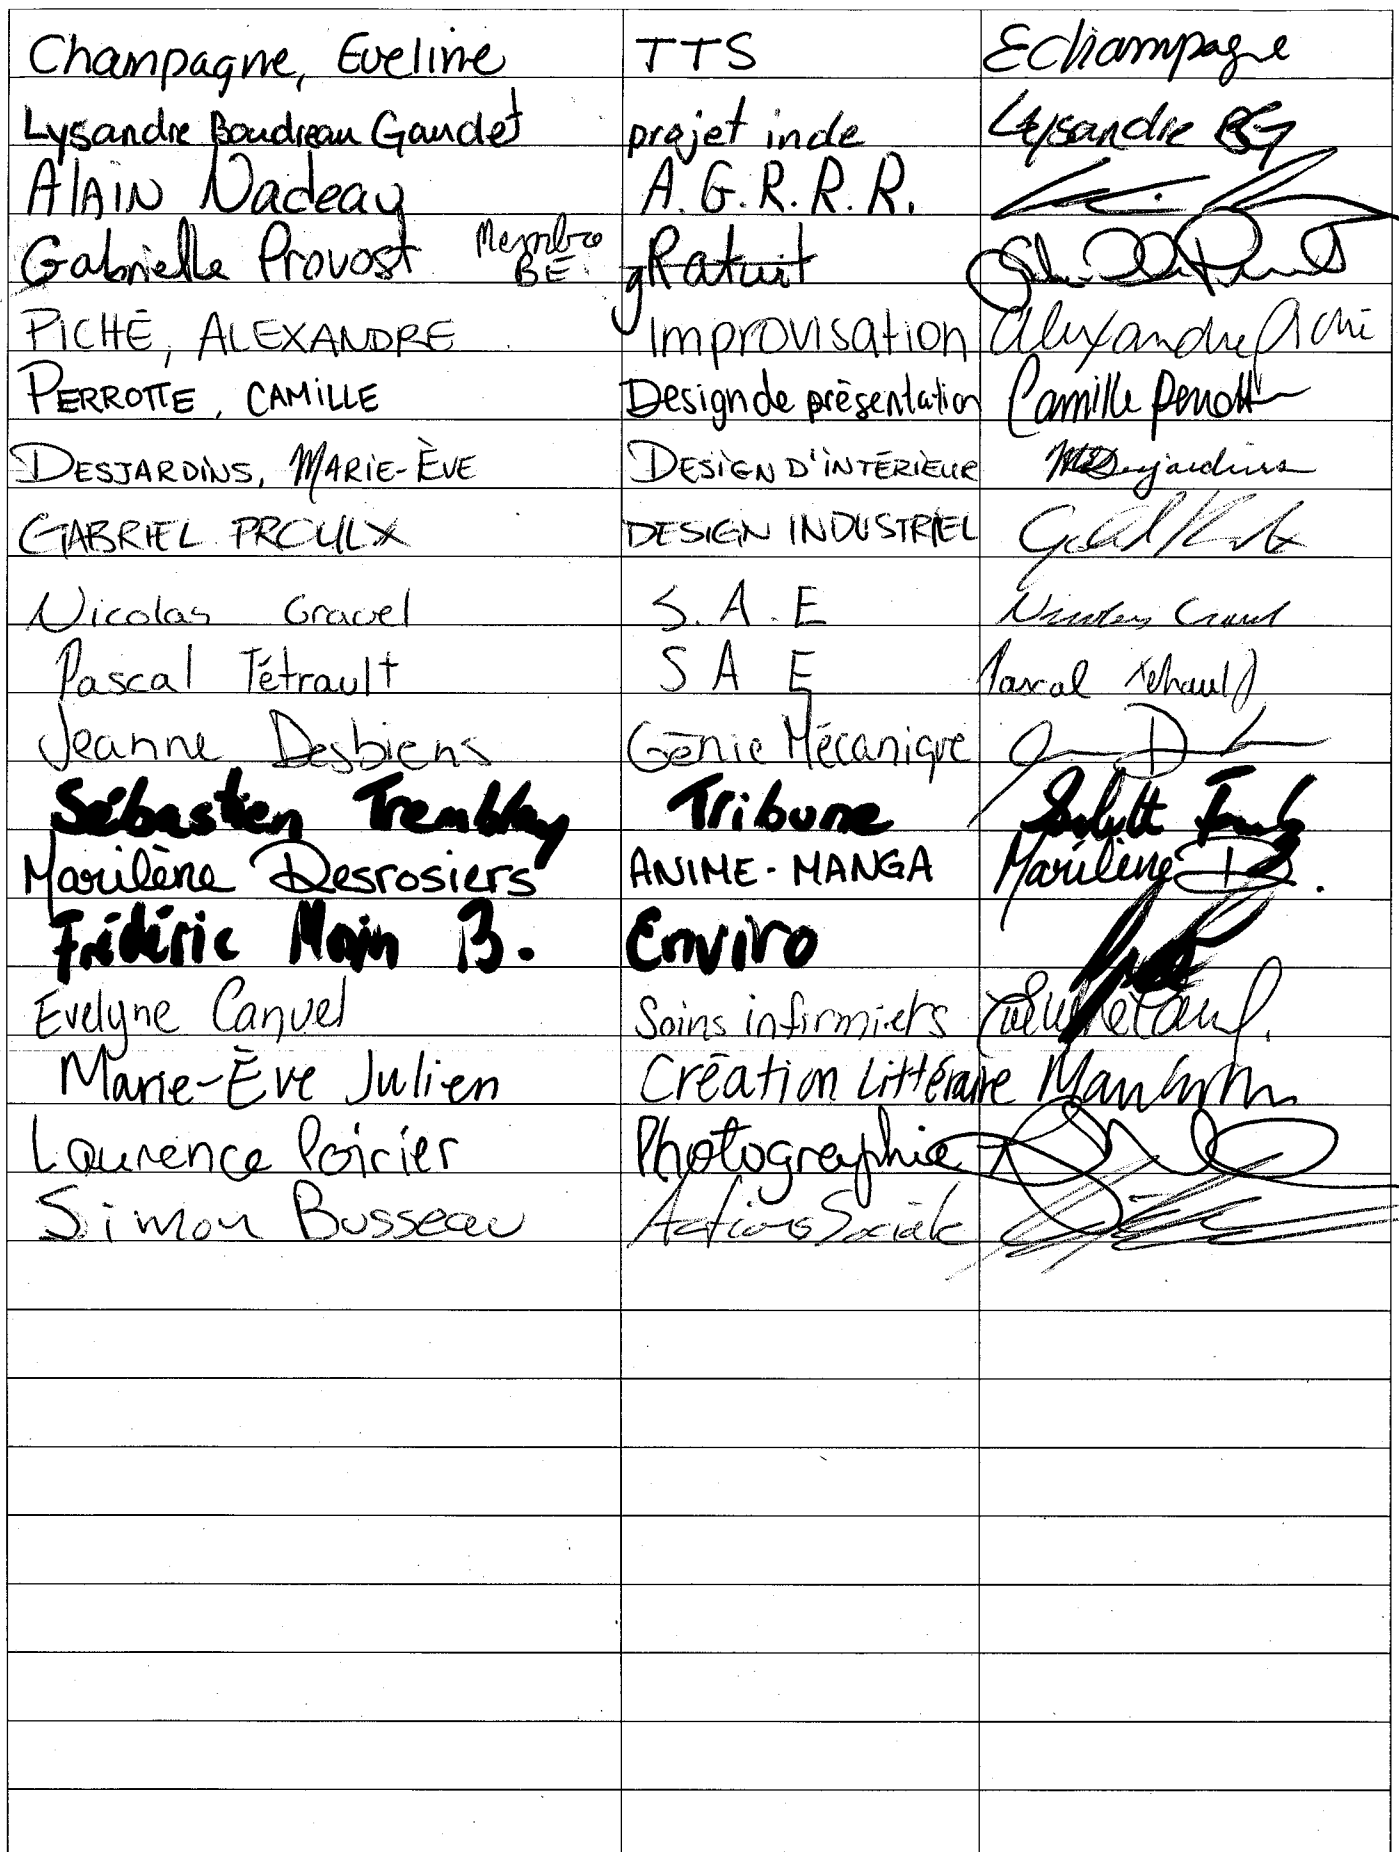 Champagne, Eveline TTS EChampagne
Lysandre Boudreau Gaudet projet inde Lysandre BG
ALAIN Nadeau A.G.R.R.R.
Gabrielle Provost Membre BE gRatuit
PICHÉ, ALEXANDRE Improvisation Alexandre Piché
PERROTTE, CAMILLE Design de présentation Camille Perrotte
DESJARDINS, MARIE-ÈVE DESIGN D'INTÉRIEUR MEDesjardins
GABRIEL PROULX DESIGN INDUSTRIEL
Nicolas Gravel S.A.E Nicolas Gravel
Pascal Tétrault S A E Pascal Tétrault
Jeanne Desbiens Génie Mécanique
Sébastien Tremblay Tribune
Marilène Desrosiers ANIME-MANGA Marilène D.
Frédéric Morin B. Enviro
Evelyne Canuel Soins infirmiers
Marie-Ève Julien Création Littéraire
Laurence Poirier Photographie
Simon Busseau Actions Sociale